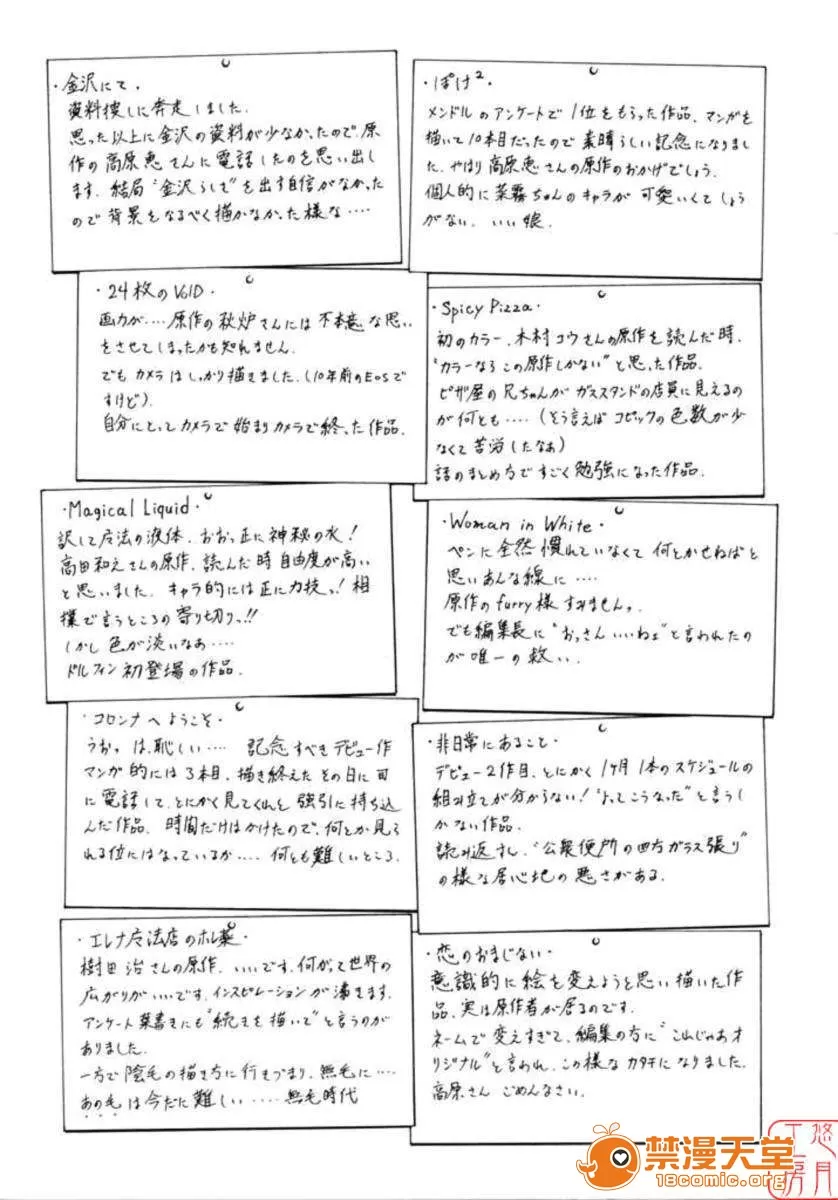 ・金沢にて.
資料捜しに奔走しました.
思った以上に金沢の資料が少なかったので、原
作の高原恵さんに電話したのを思い出し
ます. 結局"金沢らしさ"を出す自信がなかった
ので背景をなるべく描かなかった様な‥‥
・ぽけ²
メンドルのアンケートで1位をもらった作品. マンガを
描いて10本目だったので素晴らしい記念になりまし
た. やはり高原恵さんの原作のおかげでしょう.
個人的に菜霧ちゃんのキャラが可愛いくてしょう
がない. いい娘.
・24枚のVOID・
画力が‥‥原作の秋炉さんには不本意な思い
をさせてしまったかも知れません.
でもカメラはしっかり描きました.(10年前のEOSで
すけど).
自分にとってカメラで始まりカメラで終った作品.
・Spicy Pizza・
初のカラー. 木村コウさんの原作を読んだ時.
"カラーならこの原作しかない"と思った作品.
ピザ屋の兄ちゃんがガススタンドの店員に見えるの
が何とも‥‥(そう言えばコピックの色数が少
なくて苦労したなあ)
話のまとめ方ですごく勉強になった作品.
・Magical Liquid・
訳して魔法の液体. おおっ正に神秘の水!
高田和えさんの原作. 読んだ時自由度が高い
と思いました. キャラ的には正に力技っ! 相
撲で言うところの寄り切りっ!!
しかし色が淡いなあ‥‥
ドルフィン初登場の作品.
・Woman in White・
ペンに全然慣れていなくて何とかせねばと
思いあんな線に‥‥
原作のfurry様すみませんっ.
でも編集長に"おっさんいいねェ"と言われたの
が唯一の救い.
・コロンナへようこそ・
うおっは、恥しい‥‥ 記念すべきデビュー作
マンガ的には3本目. 描き終えたその日に司
に電話して、とにかく見てくれと強引に持ち込
んだ作品. 時間だけはかけたので、何とか見ら
れる位にはなっているが‥‥何とも難しいところ.
・非日常にあること・
デビュー2作目. とにかく1ヶ月1本のスケジュールの
組み立てが分からない! "よってこうなった"と言うし
かない作品.
読み返すし、"公衆便所の四方ガラス張り"
の様な居心地の悪さがある.
・エレナ魔法店のホレ薬・
樹田治さんの原作. いいです. 何がって世界の
広がりがいいです. インスピレーションが湧きます.
アンケート葉書きにも"続きを描いて"と言うのが
ありました.
一方で陰毛の描き方に行きづまり、無毛に‥‥
あの毛は今だに難しい‥‥‥無毛時代
・恋のおまじない・
意識的に絵を変えようと思い描いた作
品. 実は原作者が居るのです.
ネームで変えすぎて、編集の方に"これじゃあオ
リジナル"と言われ、この様なカタチになりました.
高原さん ごめんなさい.
悠月工房
禁漫天堂
18comic.org